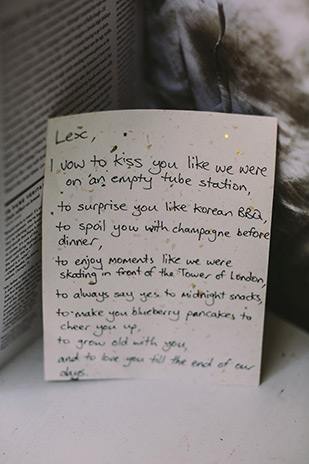 Lex,
I vow to kiss you like we were
on an empty tube station,
to surprise you like Korean BBQ,
to spoil you with champagne before
dinner,
to enjoy moments like we were
skating in front of the Tower of London,
to always say yes to midnight snacks,
to make you blueberry pancakes to
cheer you up,
to grow old with you,
and to love you till the end of our
days.